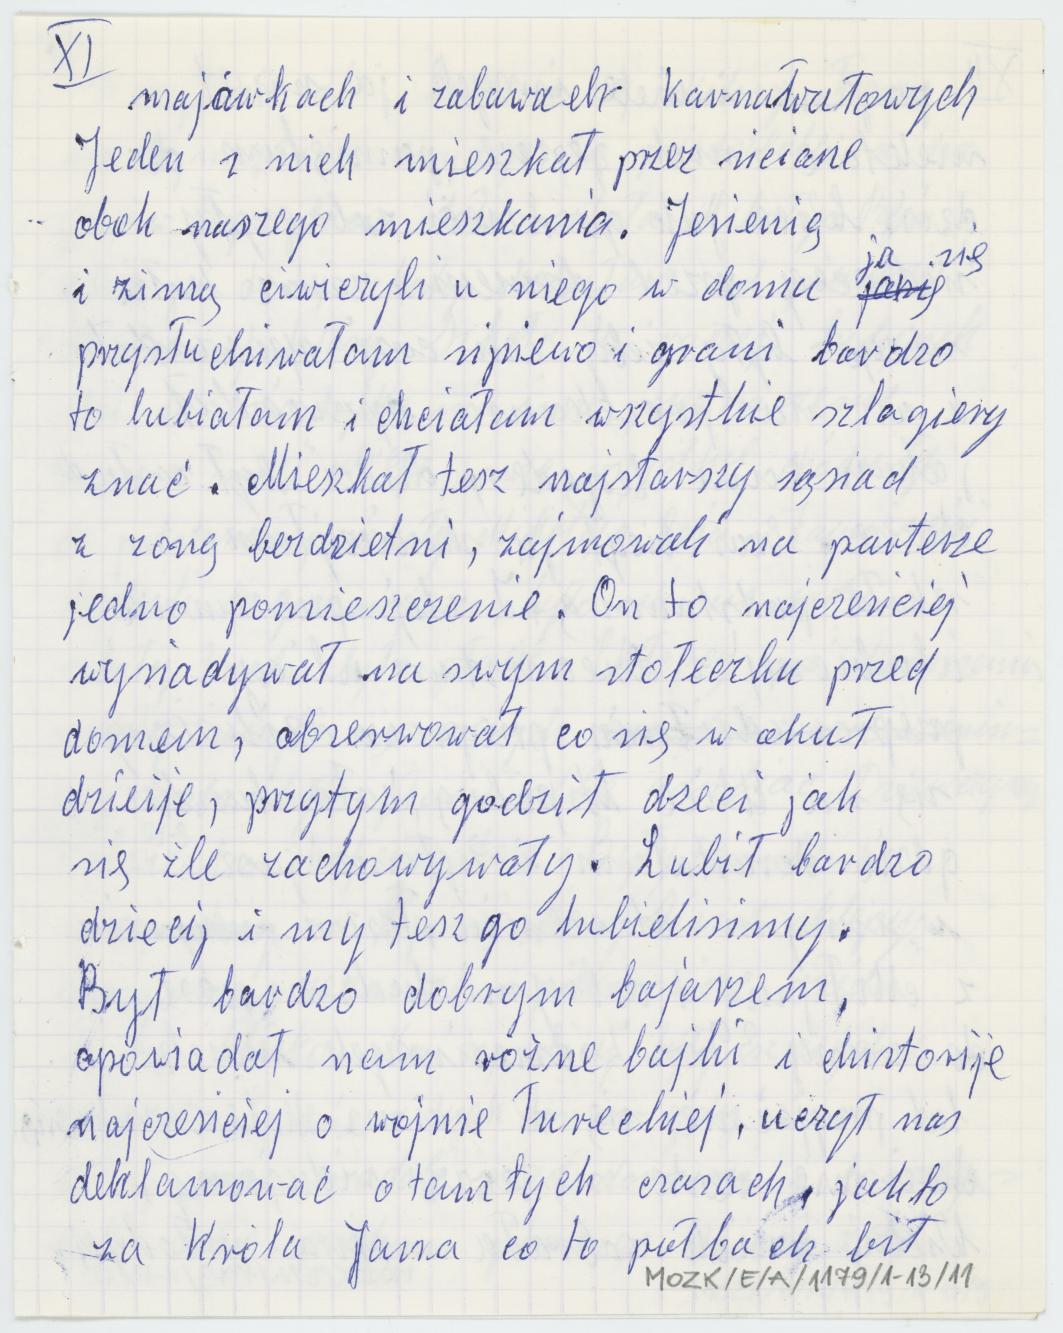 XI
majówkach i zabawach karnawałowych
Jeden z nich mieszkał przez sciane
obok naszego mieszkania. Jesienią
ja się
i zimą ciwiczyli u niego w domu jasię
przysłuchiwałam
i grani bardzo
to lubiałam i chciałam wszystkie szlagiery
znać. Mieszkał tesz najstarszy sąsiad
z zoną berdzietni, zajmowali na parterze
jedno pomieszczenie. On to najczesiciej
wysiadywał na swym stołeczku przed
domem, obserwował co się w okuł
dzieije, przytym godził dzeci jak
się żle zachowywały. Lubił bardzo
dziecij i my tesz go lubielisimy.
Był bardzo dobrym bajarzem,
opowiadał nam różne bajki i chistorije
najczesiciej o wojnie Tureckiej, uczył nas
deklamować o tamtych czasach, jakto
za Króla Jana co to połbach bił
MOZK/E/A/1179/1-13/11